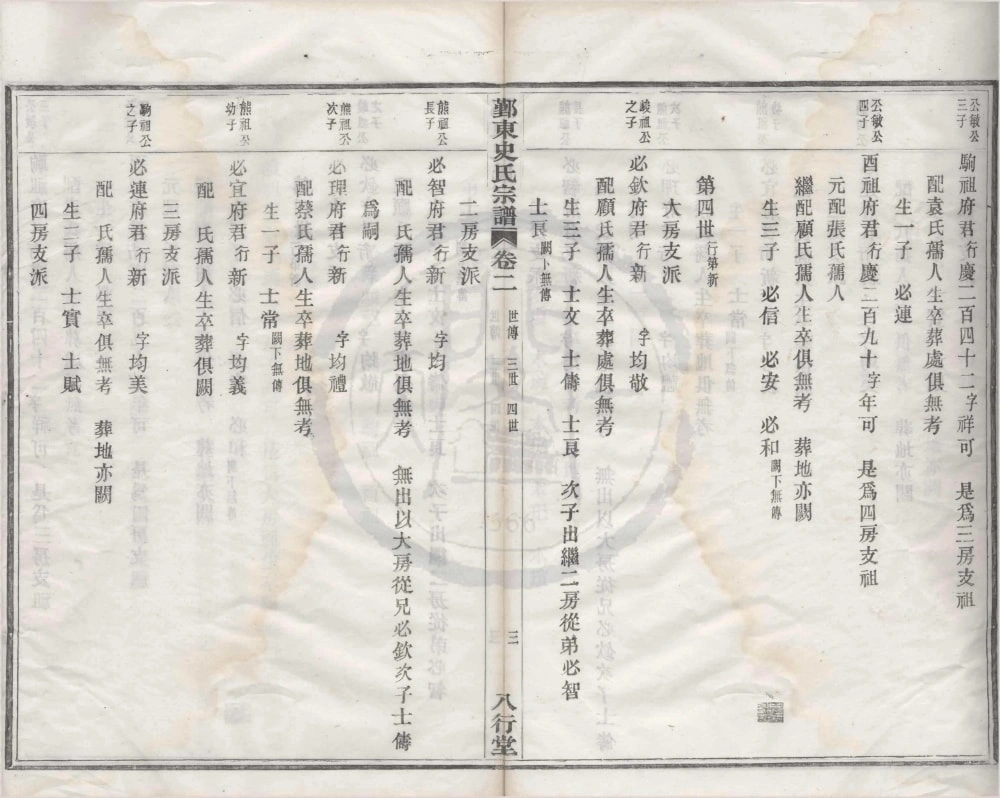 公敏公三子
駒祖府君行慶二百四十二字祥可 是爲三房支祖
配袁氏孺人生卒葬處俱無考
生一子 必蓮
公敏公四子
酉祖府君行慶二百九十字年可 是爲四房支祖
元配張氏孺人
繼配顧氏孺人生卒俱無考 葬地亦闕
生三子 必信 必安 必和闕下無傳
第四世行第新
大房支派
峻祖公之子
必欽府君行新 字均敬
配顧氏孺人生卒葬處俱無考
生三子 士文 士儔 士良 次子出繼二房從弟必智
士良闕卜無傳
鄞東史氏宗譜 卷二 世傳 三世 四世 三 八行堂
二房支派
熊祖公長子
必智府君行新 字均
配 氏孺人生卒葬地俱無考 無出以大房從兄必欽次子士儔
爲嗣
熊祖公次子
必理府君行新 字均禮
配蔡氏孺人生卒葬地俱無考
生一子 士常闕下無傳
熊祖公幼子
必宜府君行新 字均義
配 氏孺人生卒葬俱闕
三房支派
駒祖公之子
必蓮府君行新 字均美
配 氏孺人生卒俱無考 葬地亦闕
生二子 士實 士賦
四房支派